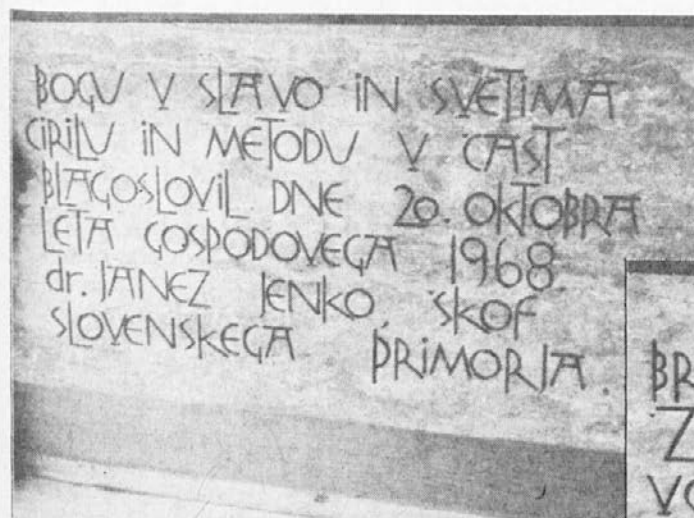 BOGU V SLAVO IN SVETIMA
CIRILU IN METODU V ČAST
BLAGOSLOVIL DNE 20. OKTOBRA
LETA GOSPODOVEGA 1968
dr. JANEZ JENKO, ŠKOF
SLOVENSKEGA PRIMORJA.